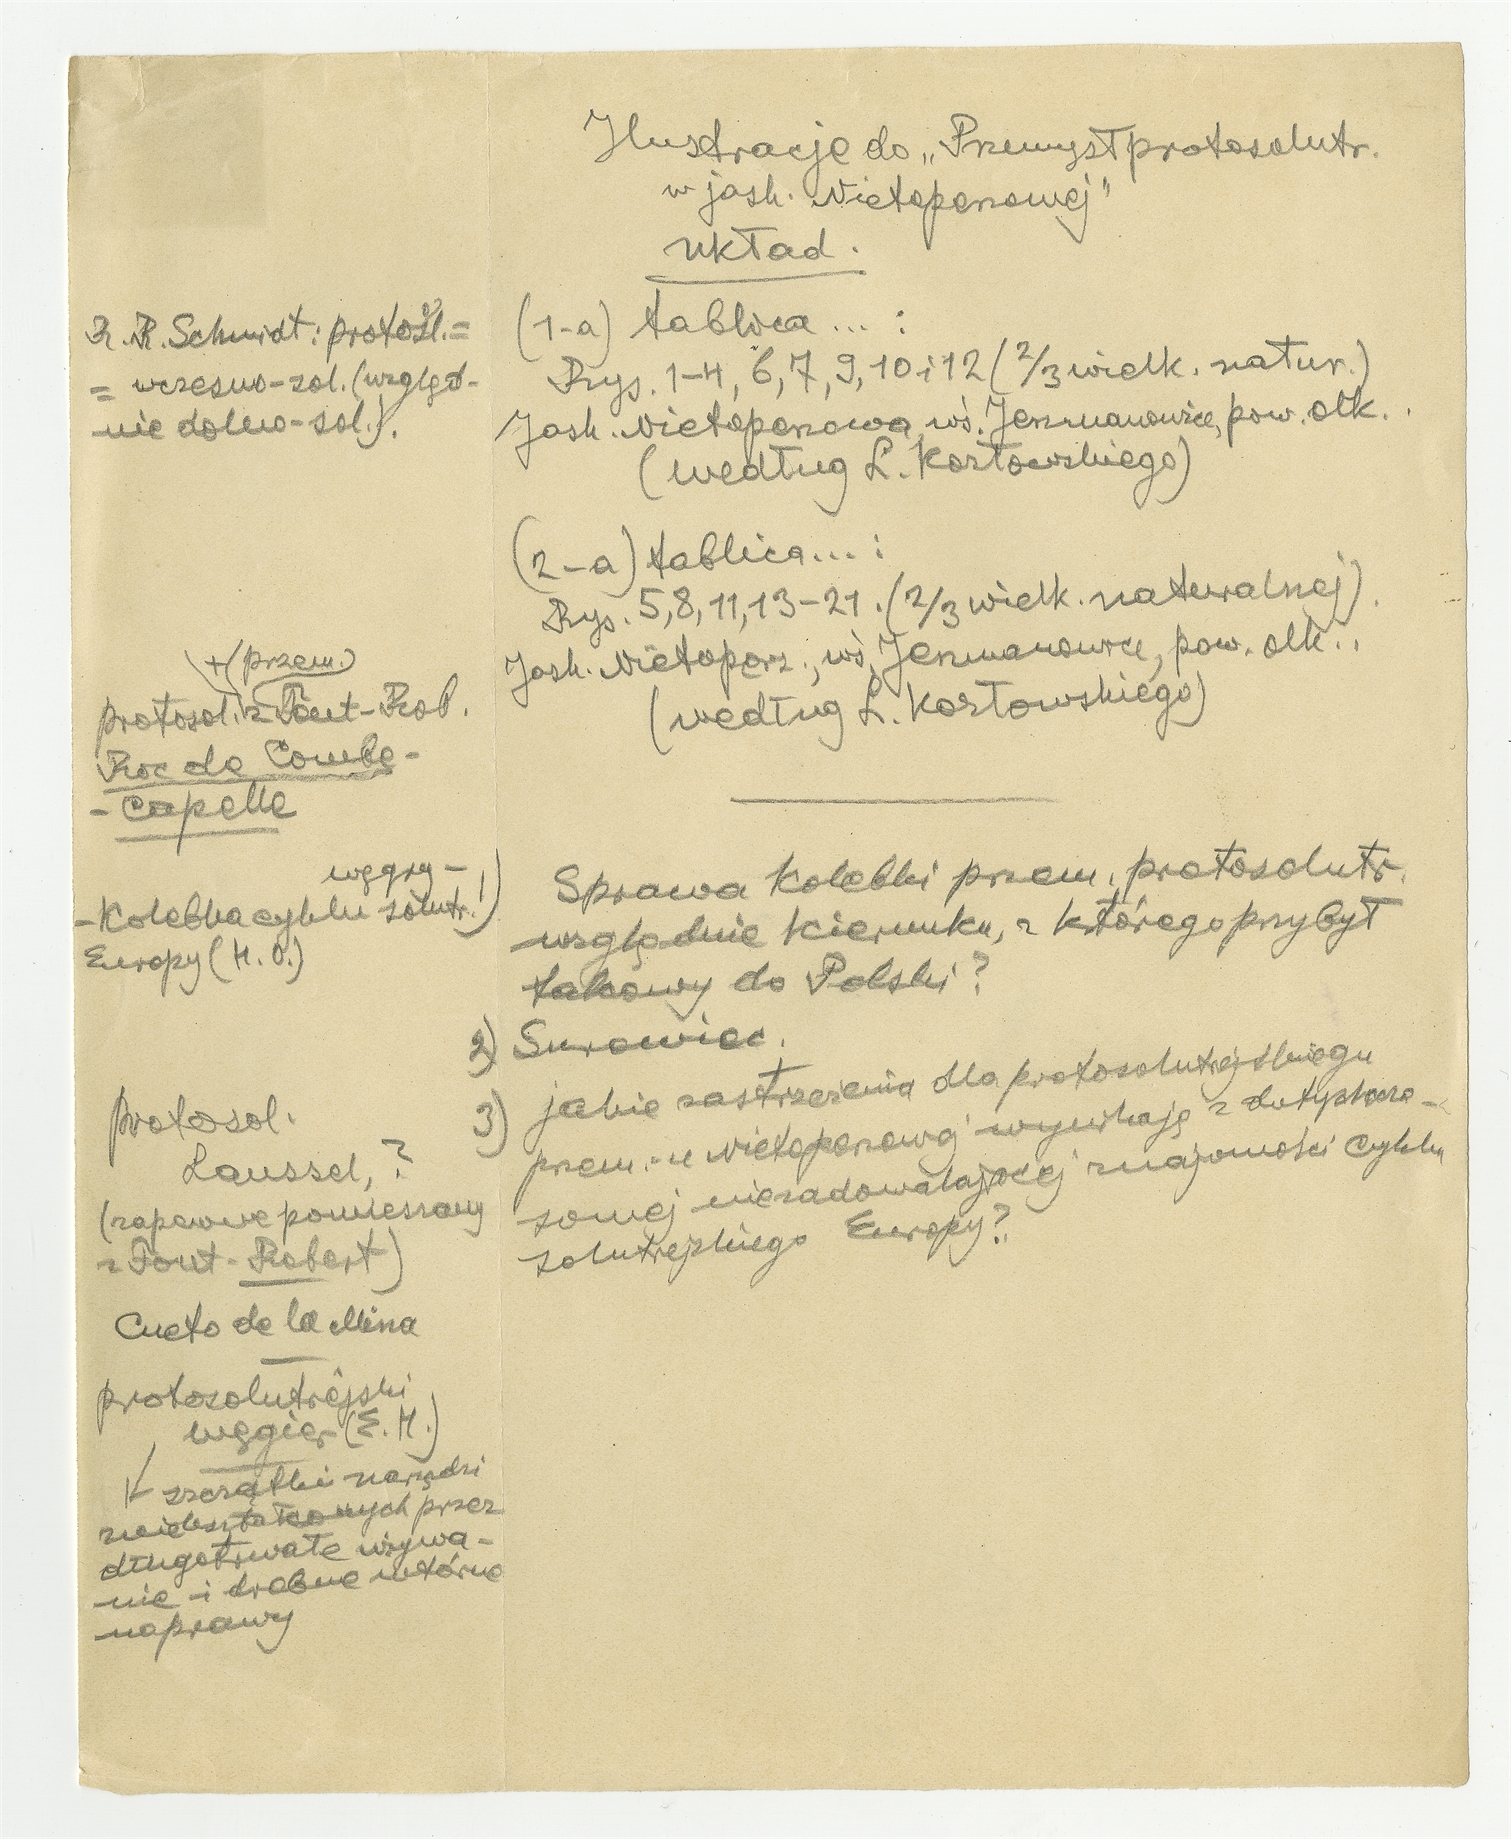 Ilustracje do „Przemysł protosolutr.
w jask. Nietoperzowej"
układ.
(1-a) tablica... :
Rys. 1-4, 6, 7, 9, 10 i 12 (2/3 wielk. natur.)
Jask. Nietoperzowa, wś. Jerzmanowice, pow. olk..
(według L. Kozłowskiego)
(2-a) tablica... :
Rys. 5, 8, 11, 13-21. (2/3 wielk. naturalnej).
Jask. Nietoperz., wś. Jerzmanowice, pow. olk..
(według L. Kozłowskiego)
1) Sprawa kolebki przem. protosolutr.
względnie kierunku, z którego przybył
takowy do Polski?
2) Surowiec.
3) jakie zastrzeżenia dla protosolutrejskiego
przem.-u Nietoperzowej wynikają z dotychcza-
sowej niezadowalającej znajomości cyklu
solutrejskiego Europy?
R. R. Schmidt: protosol. =
= wczesno-sol. (względ-
nie dolno-sol.).
+ (przem.)
protosol. z Font-Rob.
Roc de Combe-
-Capelle
węgry -
- Kolebka cyklu solutr.
Europy (H. O.)
protosol.
Laussel, ?
(zapewne pomieszany
z Font-Robert)
Cueto de la Mina
protosolutrejski
węgier (E. H.)
szczątki narzędzi
zniekształconych przez
długotrwałe używa-
nie i drobne wtórne
naprawy